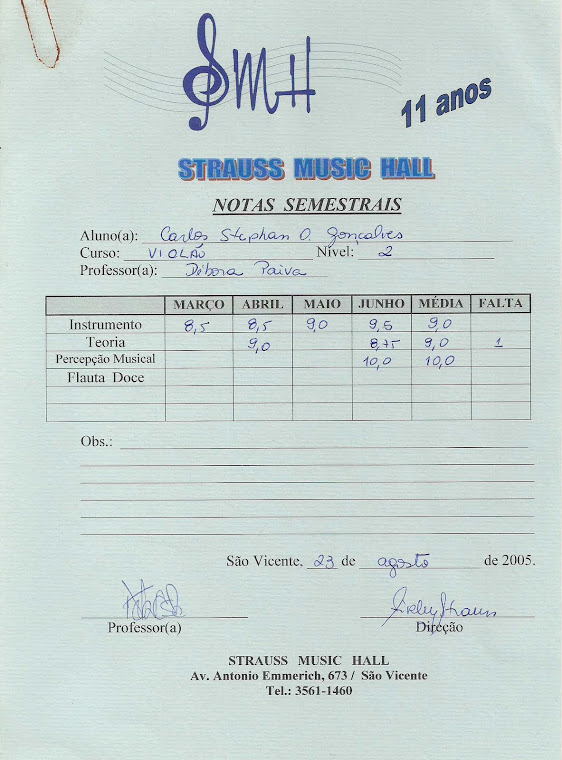 SMH
11 anos
STRAUSS MUSIC HALL
NOTAS SEMESTRAIS
Aluno(a): Carlos Stephan O. Gonçalves
Curso: VIOLÃO Nível: 2
Professor(a): Débora Paiva
MARÇO ABRIL MAIO JUNHO MÉDIA FALTA
Instrumento 8,5 8,5 9,0 9,5 9,0
Teoria 9,0 8,75 9,0 1
Percepção Musical 10,0 10,0
Flauta Doce
Obs.:
São Vicente, 23 de agosto de 2005.
Professor(a) Direção
STRAUSS MUSIC HALL
Av. Antonio Emmerich, 673 / São Vicente
Tel.: 3561-1460